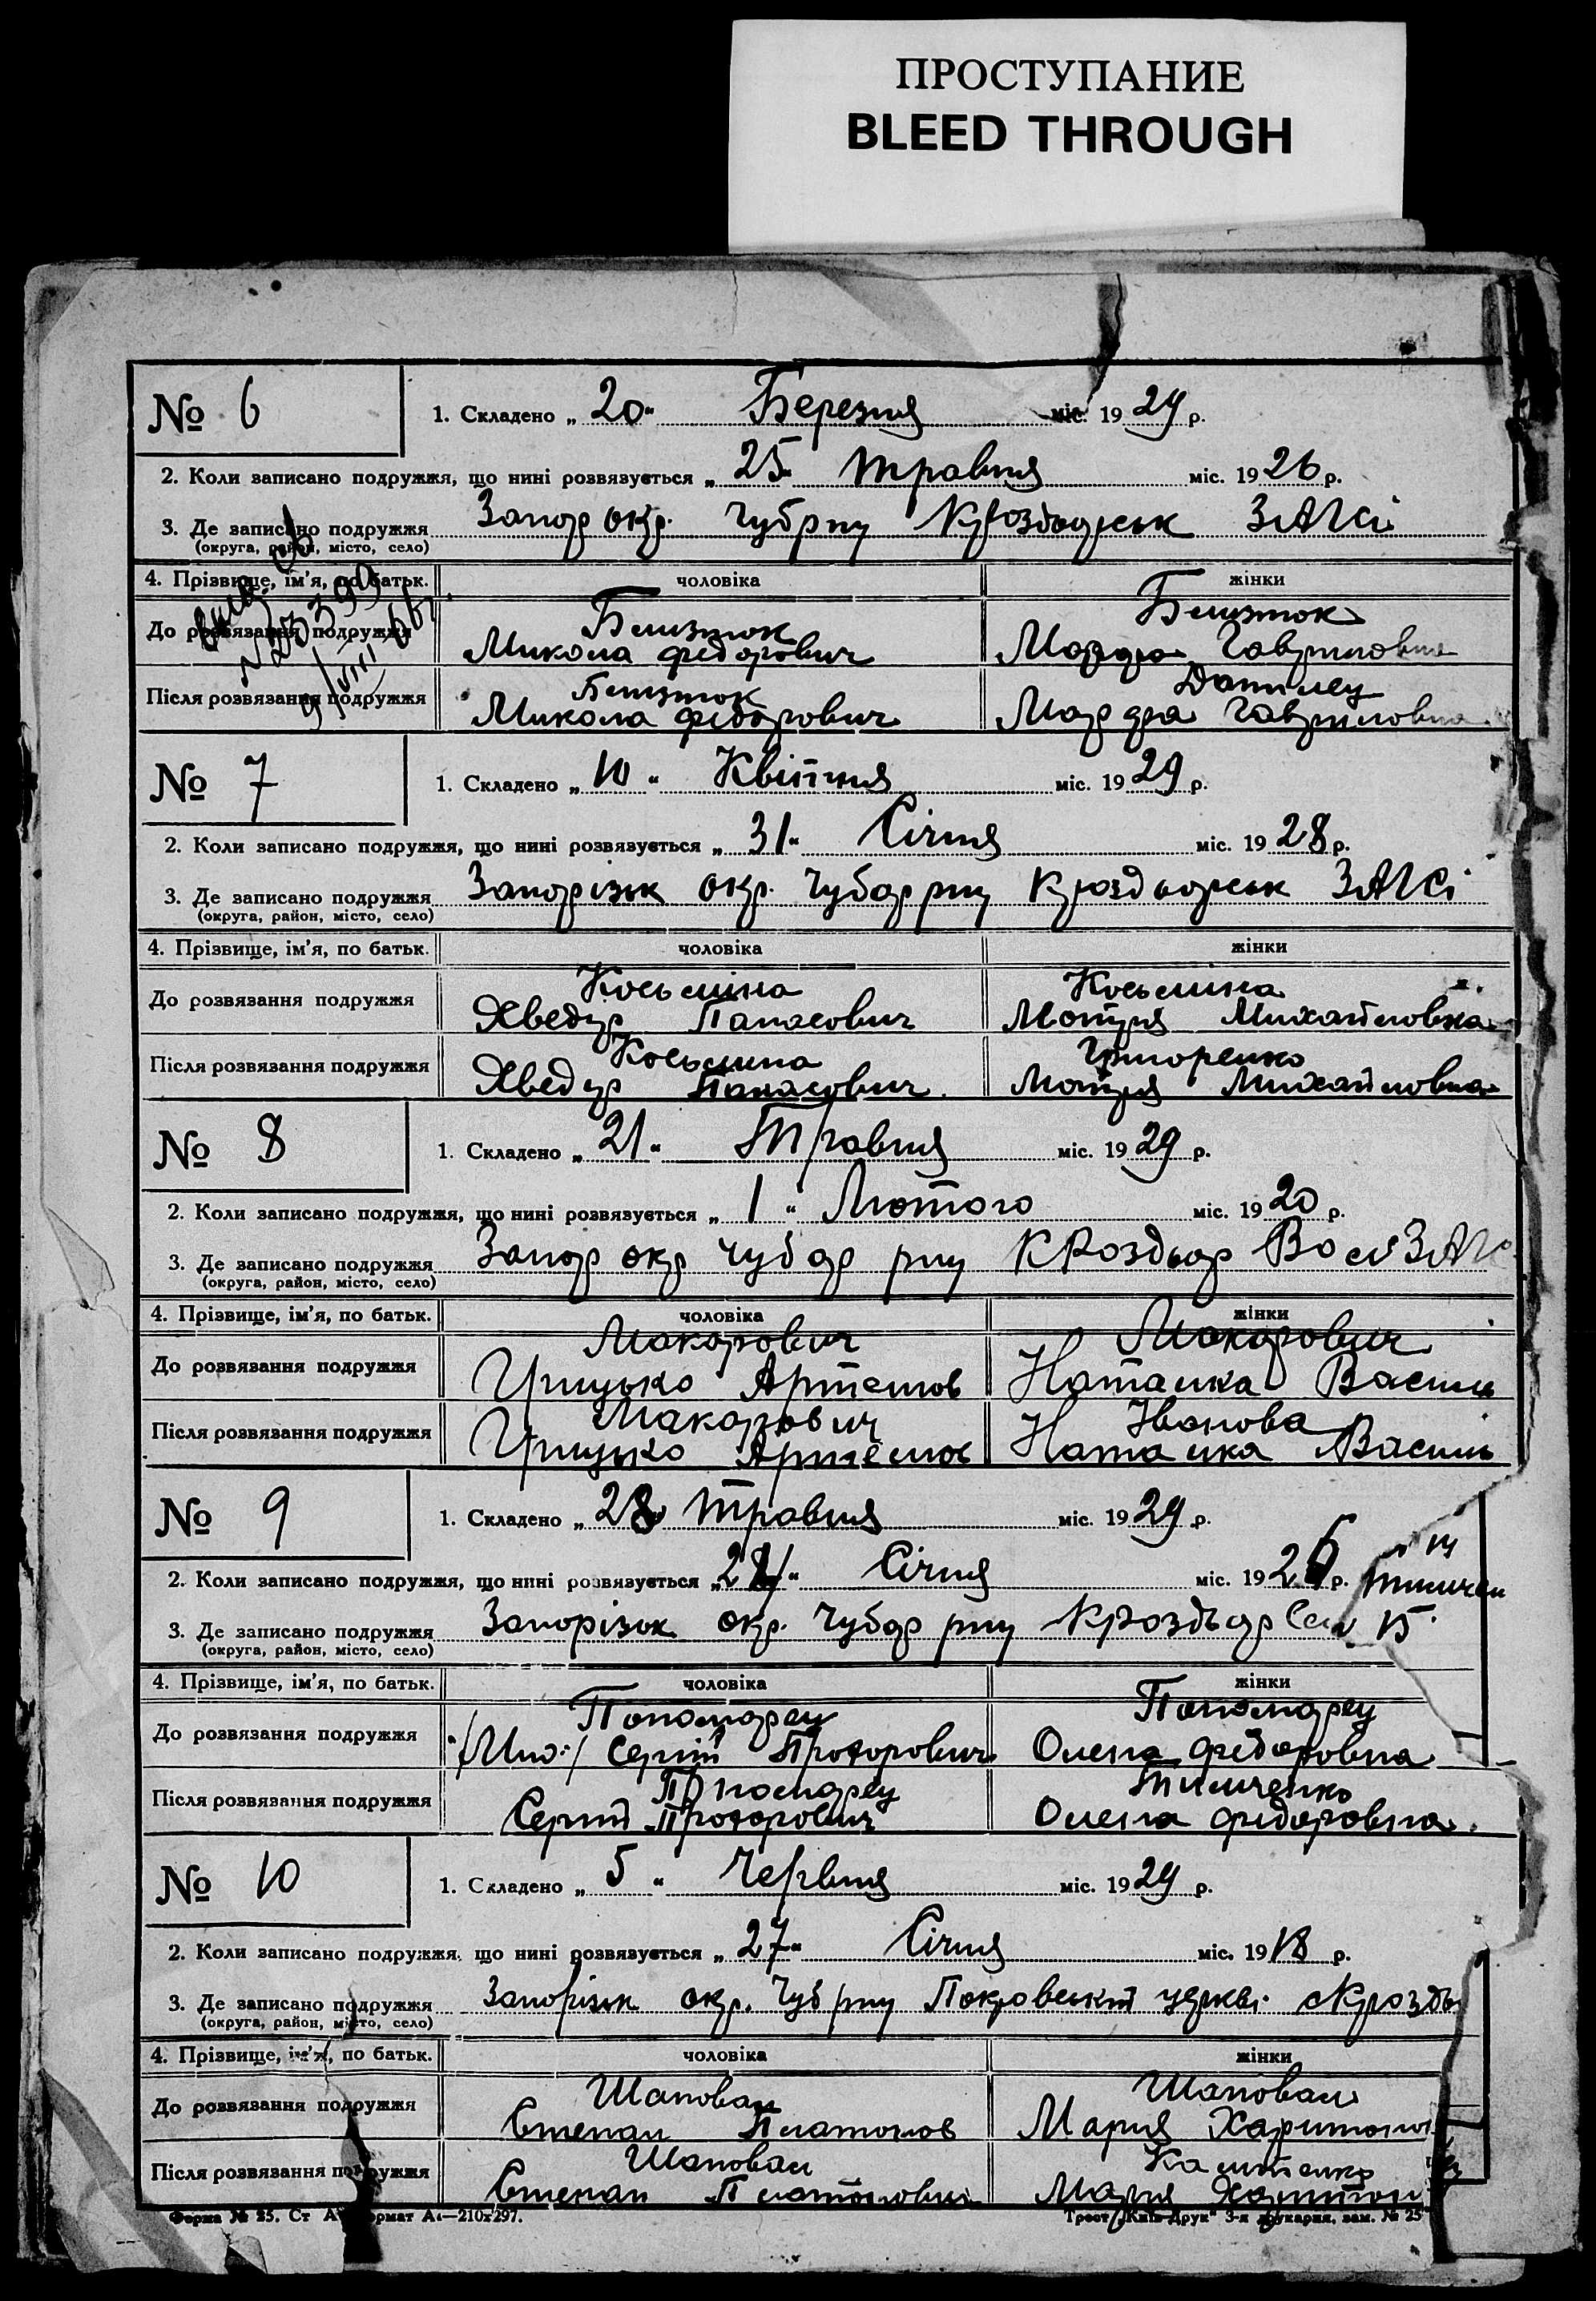 ПРОСТУПАНИЕ
BLEED THROUGH
№ 6
1. Складено „ 20 “ Березня міс. 1929 р.
2. Коли записано подружжя, що нині розвязується „ 25 “ травня міс. 1926 р.
3. Де записано подружжя Запор окр. Чуб рну ЗАГСі
(округа, район, місто, село)
4. Прізвище, ім'я, по батьк. чоловіка жінки
До розвязання подружжя
Микола Федорович Гавриловна
Після розвязання подружжя
Микола Федорович Гавриловна
№ 7
1. Складено „ 10 “ Квітня міс. 1929 р.
2. Коли записано подружжя, що нині розвязується „ 31 “ Січня міс. 1928 р.
3. Де записано подружжя Запорізьк окр. Чубар рну ЗАГСі
(округа, район, місто, село)
4. Прізвище, ім'я, по батьк. чоловіка жінки
До розвязання подружжя Косьміна Косьміна
Хведур Панасович Мотря Михайловна
Після розвязання подружжя Косьмина Григоренко
Хведур Панасович Мотря Михайловна
№ 8
1. Складено „ 21 “ Травня міс. 1929 р.
2. Коли записано подружжя, що нині розвязується „ 1 “ Лютого міс. 1920 р.
3. Де записано подружжя Запор окр Чубар рну КРоздор
(округа, район, місто, село)
4. Прізвище, ім'я, по батьк. чоловіка жінки
До розвязання подружжя Макарович Макарович
Грицько Артемов Наталка Василь
Після розвязання подружжя Макарович Іванова
Грицько Артемов Наталка Василь
№ 9
1. Складено „ 28 “ травня міс. 1929 р.
2. Коли записано подружжя, що нині розвязується „ “ Січня міс. 1926 р.
3. Де записано подружжя Запорізьк окр. Чубар рну
(округа, район, місто, село)
4. Прізвище, ім'я, по батьк. чоловіка жінки
До розвязання подружжя Пономарец Пономарец
Сергій Прохорович Олена Федоровна
Після розвязання подружжя Пономарец Тимченко
Сергій Прохорович Олена Федоровна
№ 10
1. Складено „ 5 “ Червня міс. 1929 р.
2. Коли записано подружжя, що нині розвязується „ 27 “ Січня міс. 1918 р.
3. Де записано подружжя Запорізьк окр. Чуб рну Покровській церкві
(округа, район, місто, село)
4. Прізвище, ім'я, по батьк. чоловіка жінки
До розвязання подружжя Шаповал Шаповал
Степан Платонов Мария
Після розвязання подружжя Шаповал
Степан Платонович Мария
Форма № 25. Ст —210х297. Трест „Київ-Друк“ 3-я друкарня, зам. № 25